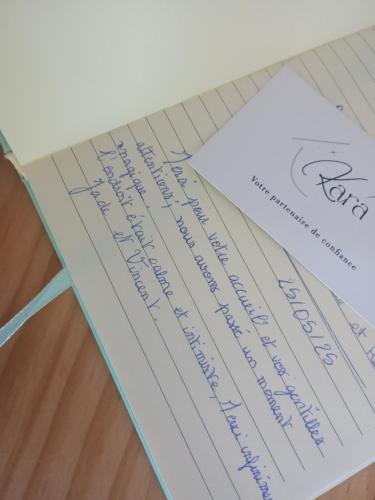 Kará
Votre partenaire de confiance
et
25/05/25
Merci pour votre accueil et vos gentilles
attentions, nous avons passé un moment
magique.
L'endroit était calme et intimiste, Merci infiniment
Jade et Vincent.